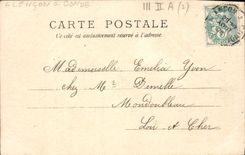 ALENÇON à CONDÉ
III II A (2)
CARTE POSTALE
Ce côté est exclusivement réservé à l'adresse.
Mademoiselle Emelia Yvon
chez Mr Demelle
Mondoubleau
Loir et Cher